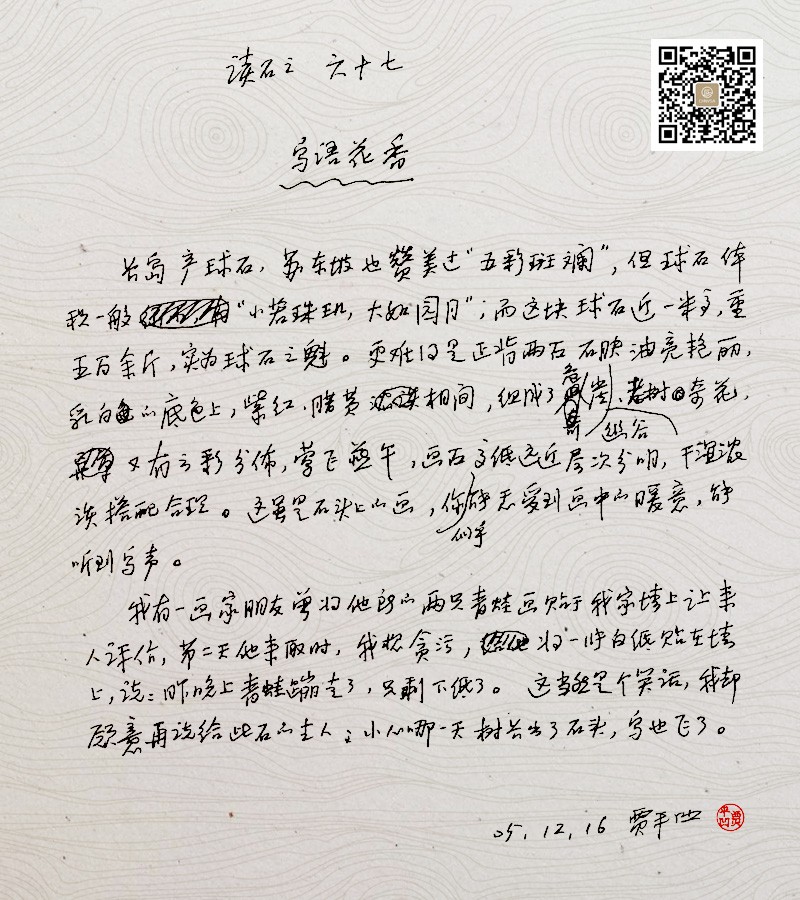 读石之 六十七
鸟语花香
长岛产球石，苏东坡也赞美过“五彩斑斓”，但球石体
积一般“小若珠玑，大如园月”；而这块球石近一米高，重
五百余斤，实为球石之魁。更难得是正背两石石肤油亮艳丽，
乳白的底色上，紫红、赭黄相间，组成了危崖、幽谷、老树奇花，
又有云彩分佈，莺飞燕午，画石高低远近层次分明，干湿浓
淡搭配合理。这虽是石头上的画，你似乎能感受到画中的暖意，能
听到鸟声。
我有一画家朋友曾将他的两只青蛙画贴于我家墙上让来
人评价，第二天他来取时，我想贪污，将一张白纸贴在墙
上，说：昨晚上青蛙蹦走了，只剩下纸了。这当然是个笑话，我却
愿意再说给此石的主人：小心哪一天树长出了石头，鸟也飞了。
05.12.16 贾平凹
贾平凹